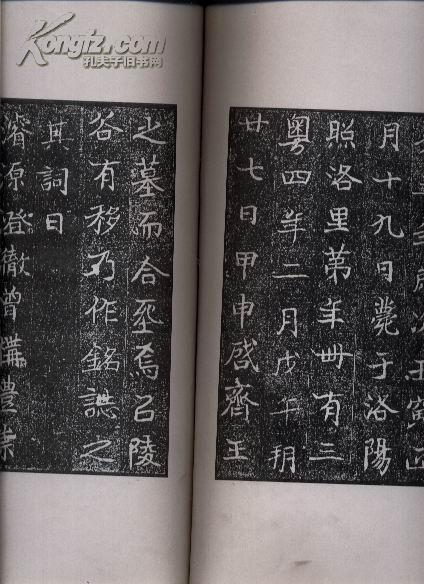 Kongfz.com
孔夫子旧书网
年歲次壬寅正
月十九日薨于洛陽
照洛里第年卌有三
粤四年二月戊午朔
廿七日甲申啓齊王
之墓而合焉以陵
谷有移乃作銘誌之
其詞曰
濬源登徹曾構豊崇